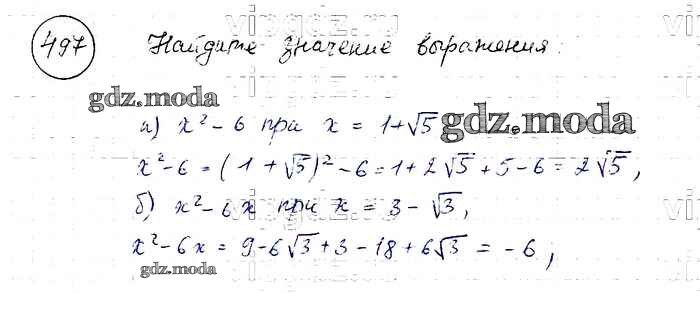 497 Найдите значение выражения:
gdz.moda
а) x² - 6 при x = 1+√5
gdz.moda
x²-6 = (1 + √5)² - 6 = 1 + 2√5 + 5 - 6 = 2√5,
б) x² - 6x при x = 3 - √3,
x² - 6x = 9 - 6√3 + 3 - 18 + 6√3 = - 6,
gdz.moda